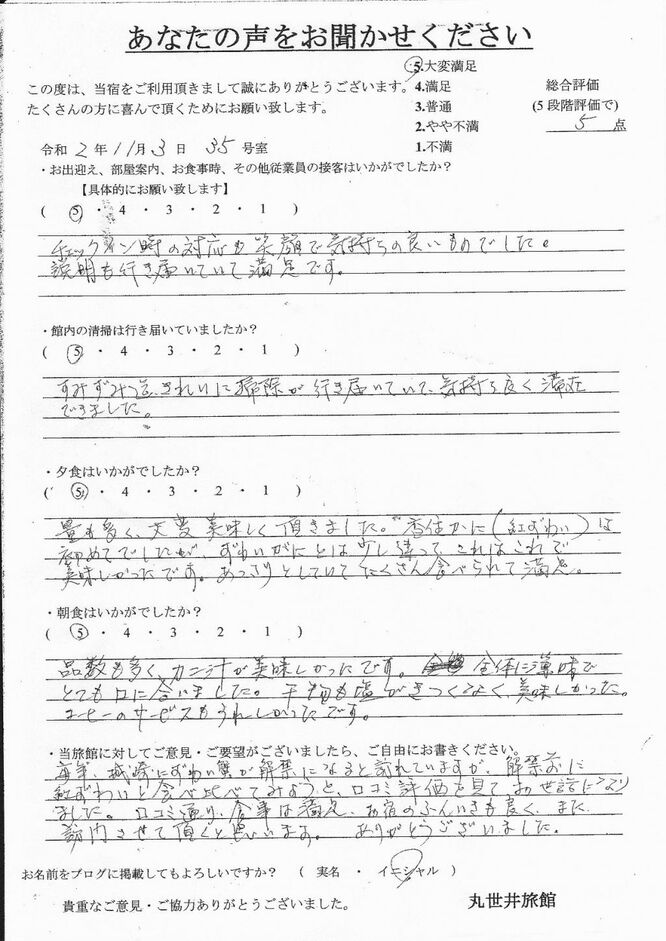 あなたの声をお聞かせください
この度は、当宿をご利用頂きまして誠にありがとうございます。
たくさんの方に喜んで頂くためにお願い致します。
5.大変満足
4.満足
3.普通
2.やや不満
1.不満
総合評価
(5段階評価で)
5 点
令和 2 年 11 月 3 日 35 号室
・お出迎え、部屋案内、お食事時、その他従業員の接客はいかがでしたか?
【具体的にお願い致します】
( 5 ・ 4 ・ 3 ・ 2 ・ 1 )
チェックイン時の対応も笑顔で気持ちの良いものでした。
説明も行き届いていて満足です。
・館内の清掃は行き届いていましたか?
( 5 ・ 4 ・ 3 ・ 2 ・ 1 )
すみずみ迄、きれいに掃除が行き届いていて、気持ち良く滞在
できました。
・夕食はいかがでしたか?
( 5 ・ 4 ・ 3 ・ 2 ・ 1 )
量も多く、大変美味しく頂きました。香住かに(紅ずわい)は
初めてでしたが、ずわいがにとは少し違って、これはこれで
美味しかったです。あっさりとしていてたくさん食べられて満足。
・朝食はいかがでしたか?
( 5 ・ 4 ・ 3 ・ 2 ・ 1 )
品数も多く、カニ汁が美味しかったです。全体に薄味で
とても口に合いました。干物も塩がきつくなく、美味しかった。
コーヒーのサービスもうれしかったです。
・当旅館に対してご意見・ご要望がございましたら、ご自由にお書きください。
毎年、城崎にずわい蟹が解禁になると訪れていますが、解禁前に
紅ずわいと食べ比べてみようと、口コミ評価を見てお世話になり
ました。口コミ通り、食事は満足、お宿のふんいきも良く、また
訪問させて頂くと思います。ありがとうございました。
お名前をブログに掲載してもよろしいですか? ( 実名 ・ イニシャル )
貴重なご意見・ご協力ありがとうございました。
丸世井旅館